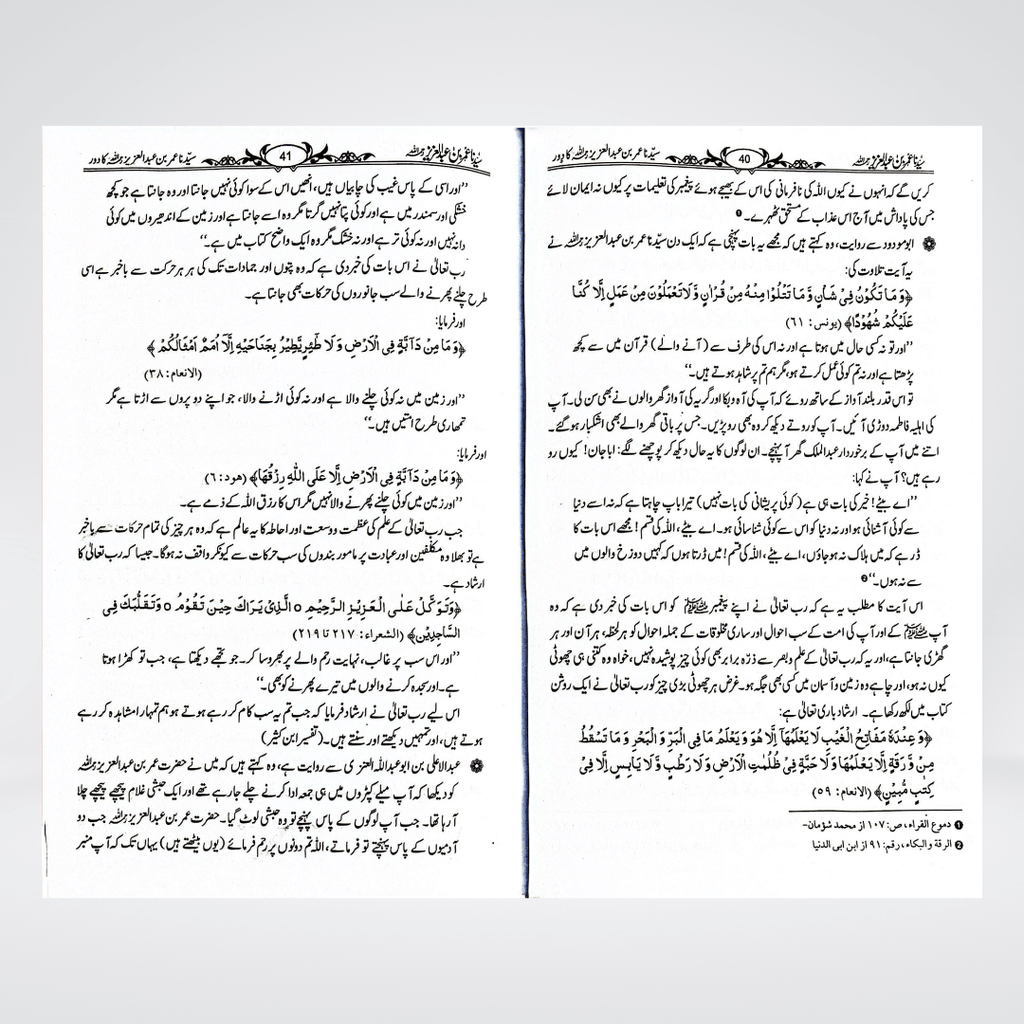 سیّدنا عمر بن عبدالعزیز رحمہ اللہ 40 سیّدنا عمر بن عبدالعزیز رحمہ اللہ کا دور
کریں گے کہ انہوں نے کیوں اللہ کی نافرمانی کی اس کے بھیجے ہوئے پیغمبر کی تعلیمات پر کیوں نہ ایمان لائے
جس کی پاداش میں آج اس عذاب کے مستحق ٹھہرے۔ ❶
ابومودود سے روایت، وہ کہتے ہیں کہ مجھے یہ بات پہنچی ہے کہ ایک دن سیّدنا عمر بن عبدالعزیز رحمہ اللہ نے
یہ آیت تلاوت کی:
﴿وَ مَا تَكُوْنُ فِیْ شَاْنٍ وَّ مَا تَتْلُوْا مِنْهُ مِنْ قُرْاٰنٍ وَّ لَا تَعْمَلُوْنَ مِنْ عَمَلٍ اِلَّا كُنَّا
عَلَیْكُمْ شُهُوْدًا﴾ (یونس: ٦١)
’’اور تو نہ کسی حال میں ہوتا ہے اور نہ اس کی طرف سے (آنے والے) قرآن میں سے کچھ
پڑھتا ہے اور نہ تم کوئی عمل کرتے ہو، مگر ہم تم پر شاہد ہوتے ہیں۔‘‘
تو اس قدر بلند آواز کے ساتھ روئے کہ آپ کی آہ و بکا اور گریہ کی آواز گھر والوں نے بھی سن لی۔ آپ
کی اہلیہ فاطمہ دوڑی آئیں۔ آپ کو روتے دیکھ کر وہ بھی رو پڑیں۔ جس پر باقی گھر والے بھی اشکبار ہو گئے۔
اتنے میں آپ کے برخوردار عبدالملک گھر آ پہنچے۔ ان لوگوں کا یہ حال دیکھ کر پوچھنے لگے: ابا جان! کیوں رو
رہے ہیں؟ آپ نے کہا:
’’اے بیٹے! خیر کی بات ہی ہے (کوئی پریشانی کی بات نہیں) تیرا باپ چاہتا ہے کہ نہ اسے دنیا
سے کوئی آشنائی ہو اور نہ دنیا کو اس سے کوئی شناسائی ہو۔ اے بیٹے، اللہ کی قسم! مجھے اس بات کا
ڈر ہے کہ میں ہلاک نہ ہو جاؤں، اے بیٹے، اللہ کی قسم! میں ڈرتا ہوں کہ کہیں دوزخ والوں میں
سے نہ ہوں۔‘‘ ❷
اس آیت کا مطلب یہ ہے کہ رب تعالیٰ نے اپنے پیغمبر ﷺ کو اس بات کی خبر دی ہے کہ وہ
آپ ﷺ کے اور آپ کی امت کے سب احوال اور ساری مخلوقات کے جملہ احوال کو ہر لحظہ، ہر آن اور ہر
گھڑی جانتا ہے، اور یہ کہ رب تعالیٰ کے علم و بصر سے ذرّہ برابر بھی کوئی چیز پوشیدہ نہیں، خواہ وہ کتنی ہی چھوٹی
کیوں نہ ہو، اور چاہے وہ زمین و آسمان میں کسی بھی جگہ ہو۔ غرض ہر چھوٹی بڑی چیز کو رب تعالیٰ نے ایک روشن
کتاب میں لکھ رکھا ہے۔ ارشاد باری تعالیٰ ہے:
﴿وَ عِنْدَهٗ مَفَاتِحُ الْغَیْبِ لَا یَعْلَمُهَاۤ اِلَّا هُوَ وَ یَعْلَمُ مَا فِی الْبَرِّ وَ الْبَحْرِ وَ مَا تَسْقُطُ
مِنْ وَّرَقَةٍ اِلَّا یَعْلَمُهَا وَ لَا حَبَّةٍ فِیْ ظُلُمٰتِ الْاَرْضِ وَ لَا رَطْبٍ وَّ لَا یَابِسٍ اِلَّا فِیْ
كِتٰبٍ مُّبِیْنٍ﴾ (الانعام: ٥٩)
❶ دموع القراء، ص: ١٠٧ از محمد شؤمان-
❷ الرقة والبکاء، رقم: ٩١ از ابن ابی الدنیا
سیّدنا عمر بن عبدالعزیز رحمہ اللہ 41 سیّدنا عمر بن عبدالعزیز رحمہ اللہ کا دور
’’اور اسی کے پاس غیب کی چابیاں ہیں، انھیں اس کے سوا کوئی نہیں جانتا اور وہ جانتا ہے جو کچھ
خشکی اور سمندر میں ہے اور کوئی پتا نہیں گرتا مگر وہ اسے جانتا ہے اور زمین کے اندھیروں میں کوئی
دانہ نہیں اور نہ کوئی تر ہے اور نہ خشک مگر وہ ایک واضح کتاب میں ہے۔‘‘
رب تعالیٰ نے اس بات کی خبر دی ہے کہ وہ پتوں اور جمادات تک کی ہر ہر حرکت سے باخبر ہے اسی
طرح چلنے پھرنے والے سب جانوروں کی حرکات بھی جانتا ہے۔
اور فرمایا:
﴿وَ مَا مِنْ دَآبَّةٍ فِی الْاَرْضِ وَ لَا طٰٓئِرٍ یَّطِیْرُ بِجَنَاحَیْهِ اِلَّاۤ اُمَمٌ اَمْثَالُكُمْ﴾
(الانعام: ٣٨)
’’اور زمین میں نہ کوئی چلنے والا ہے اور نہ کوئی اڑنے والا، جو اپنے دو پروں سے اڑتا ہے مگر
تمھاری طرح امتیں ہیں۔‘‘
اور فرمایا:
﴿وَ مَا مِنْ دَآبَّةٍ فِی الْاَرْضِ اِلَّا عَلَى اللّٰهِ رِزْقُهَا﴾ (هود: ٦)
’’اور زمین میں کوئی چلنے پھرنے والا نہیں مگر اس کا رزق اللہ کے ذمے ہے۔
جب رب تعالیٰ کے علم کی عظمت و وسعت اور احاطہ کا یہ عالم ہے کہ وہ ہر چیز کی تمام حرکات سے باخبر
ہے تو بھلا وہ مکلفین اور عبادت پر مامور بندوں کی سب حرکات سے کیونکر واقف نہ ہوگا۔ جیسا کہ رب تعالیٰ کا
ارشاد ہے۔
﴿وَتَوَكَّلْ عَلَى الْعَزِیْزِ الرَّحِیْمِ ○ الَّذِیْ یَرَاكَ حِیْنَ تَقُوْمُ ○ وَتَقَلُّبَكَ فِی
السَّاجِدِیْنَ﴾ (الشعراء: ٢١٧ تا ٢١٩)
’’اور اس سب پر غالب، نہایت رحم والے پر بھروسا کر۔ جو تجھے دیکھتا ہے، جب تو کھڑا ہوتا
ہے۔ اور سجدہ کرنے والوں میں تیرے پھرنے کو بھی۔‘‘
اس لیے رب تعالیٰ نے ارشاد فرمایا کہ جب تم یہ سب کام کر رہے ہوتے ہو ہم تمہارا مشاہدہ کر رہے
ہوتے ہیں، اور تمہیں دیکھتے اور سنتے ہیں۔ (تفسیر ابن کثیر)
عبدالاعلیٰ بن ابو عبداللہ العنزی سے روایت ہے، وہ کہتے ہیں کہ میں نے حضرت عمر بن عبدالعزیز رحمہ اللہ
کو دیکھا کہ آپ میلے کپڑوں میں ہی جمعہ ادا کرنے چلے جا رہے تھے اور ایک حبشی غلام پیچھے پیچھے چلا
آ رہا تھا۔ جب آپ لوگوں کے پاس پہنچے تو وہ حبشی لوٹ گیا۔ حضرت عمر بن عبدالعزیز رحمہ اللہ جب دو
آدمیوں کے پاس پہنچتے تو فرماتے، اللہ تم دونوں پر رحم فرمائے (یوں بیٹھتے ہیں) یہاں تک کہ آپ منبر